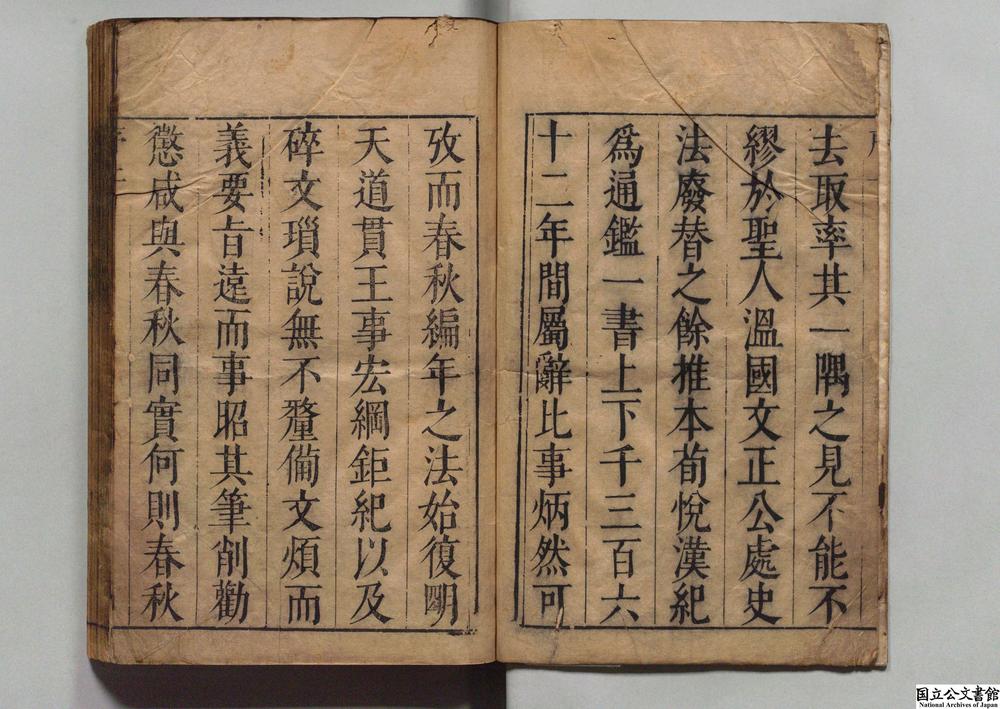 去取率共一隅之見不能不
繆於聖人溫國文正公處史
法廢替之餘推本荀悅漢紀
爲通鑑一書上下千三百六
十二年間屬辭比事炳然可
攷而春秋編年之法始復明
天道貫王事宏綱鉅紀以及
碎文瑣說無不釐僃文煩而
義要旨遠而事昭其筆削勸
懲咸與春秋同實何則春秋
国立公文書館
National Archives of Japan